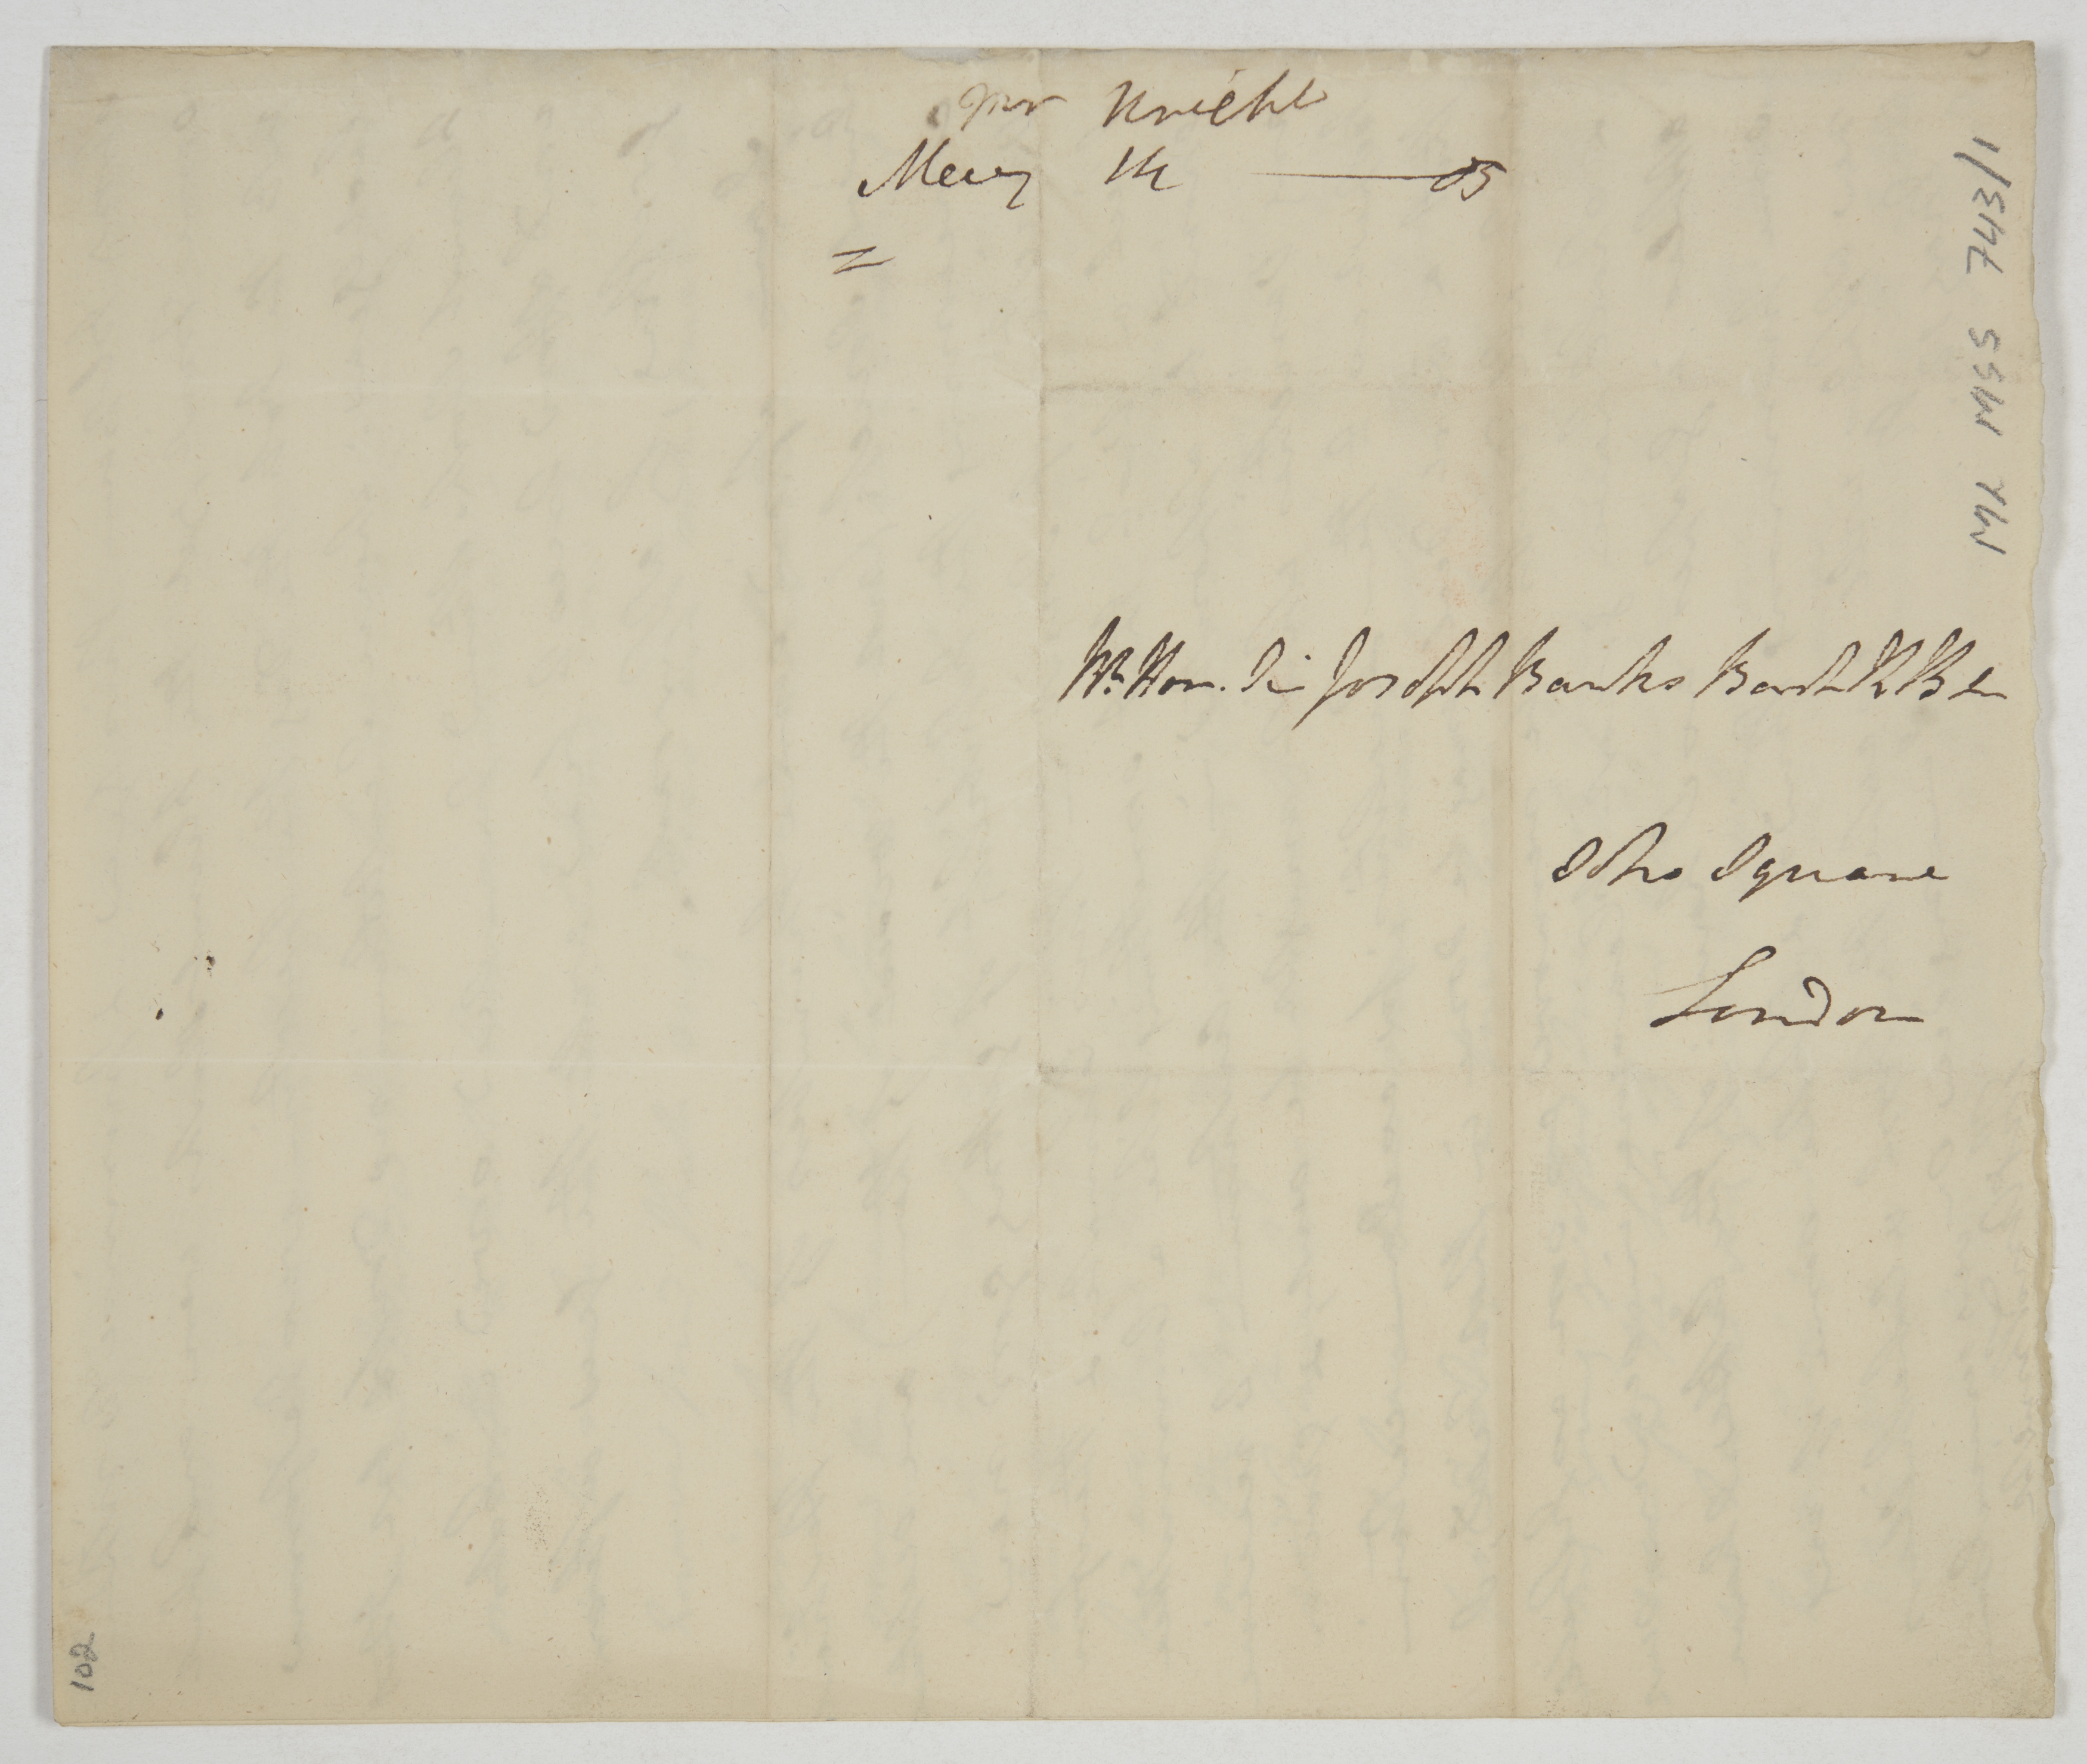 Mr Knight
May 14 — 05
Rt. Hon. Sir Joseph Banks Bart. K B &c
Soho Square
London
ML MSS 743/1
102